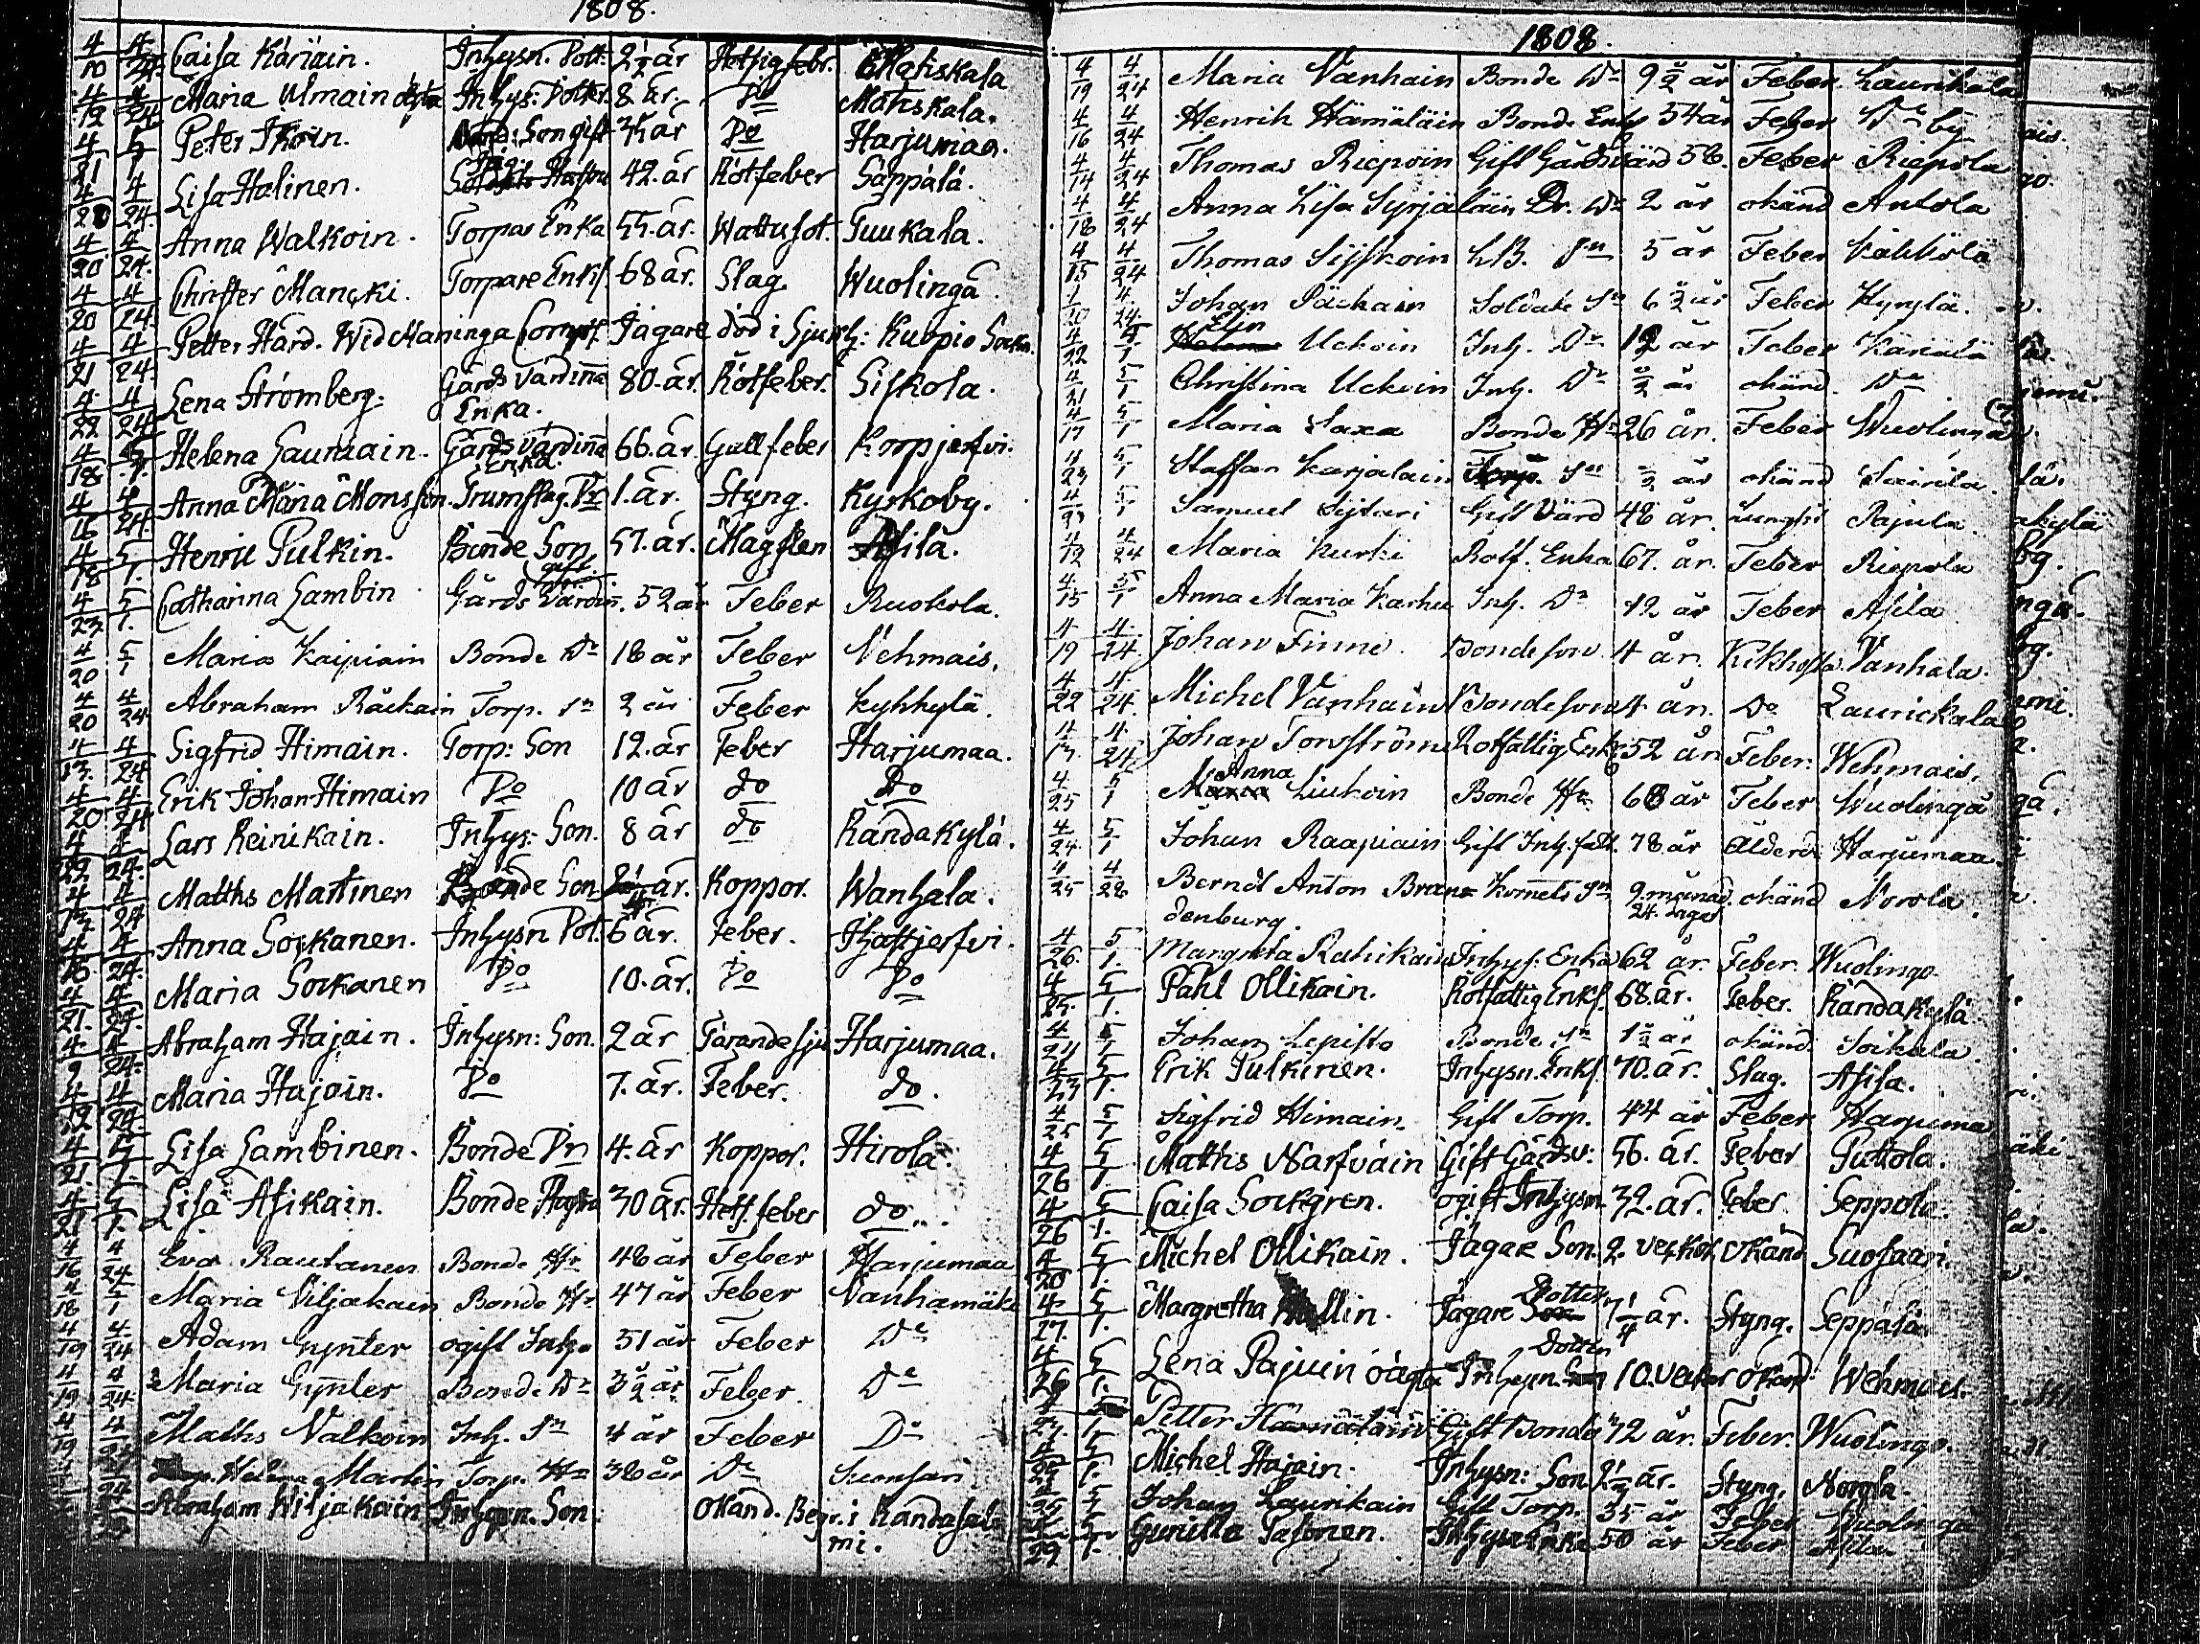 1808.
4/10 4/24 Caisa Käriäin. Inhysn. Dott: 2 1/2 år Hetsig febr. Matiskala
4/19 4/24 Maria Ulmain Inhys: Dotter 8 år. Do Matiskala.
4/21 5/1 Peter Ikoin. Son gift 35 år Do Harjumaa.
4/20 4/24. Lisa Halinen. Hustru 42. år Rötfeber Säppälä.
4/20 4/24. Anna Walkoin. Torpar Enka 55. år. Wattusot. Tuukala.
4/20 4/24. Christer Mancki. Torpare Enkl. 68 år. Slag. Wuolingå
4/21 4/24. Petter Hård. Wid Maninga Comp: Jägare död i Sjukh: Kuopio Sockn.
4/22 4/24 Lena Strömberg. Gårds Vardinna 80. år. Rötfeber. Siskola.
Enka.
4/18 5/1. Helena Laumain. Gårds Värdinna 66. år. Gallfeber Korpjerfvi.
Enka.
4/16 4/24 Anna Maria Monsson. Trumslag. Dr 1. år. Styng. Kyrkoby.
4/18 5/1. Henric Pulkin. Bonde Son 57. år. Magplen Asila.
gift
4/23 5/1. Catharina Lambin Gårds Värdin. 52 år Feber Ruokola.
4/20 5/1 Maria Kaipiain Bonde Dr 18 år Feber Vehmais.
4/20 4/24 Abraham Räckäin Torp. Sn 2 år Feber Kyhkylä.
4/13. 4/24 Sigfrid Himain. Torp: Son 12. år Feber Harjumaa.
4/20 4/24 Erik Johan Himain Do 10 år do Do
4/22 4/24. Lars Reinikain. Inhys: Son. 8 år do Randakylä.
4/17 4/24 Matths Martinen Bonde Son år. Koppor. Wanhala.
4/16. 4/24. Anna Sorkanen. Inhysn Dot. 6 år. Feber.
4/21. 4/24. Maria Sorkanen Do 10. år. Do Do
4/9 4/24. Abraham Hajain. Inhysn: Son. 2 år Tärande sju Harjumaa.
4/19 4/24. Maria Hajoin. Do 7. år. Feber. do.
4/21. 5/1. Lisa Lambinen. Bonde Dr 4. år Koppor. Hirola.
4/21 5/1. Lisa Asikain. Bonde 30 år. Hets. feber do.
4/16 4/24 Eva Rautanen Bonde Hu 48 år Feber Harjumaa
4/18 5/1 Maria Viljakain Bonde Hu 47 år Feber Vanhamäki
4/19 4/24 Adam Gynter ogift Inh. 51 år Feber Do
4/19 4/24 Maria Gynter Bonde Dr 3 1/2 år Feber. Do
4/19 4/24 Maths Valkoin Inh. Sn 4 år Feber Do
Helena Martin Torp. Hu 38 år Do Suonsari
Abraham Wiljakain Inhysn. Son okänd. Begr. i Randasal-
mi.
1808.
4/19 4/24 Maria Vanhain Bonde Dr 9 1/2 år Feber Laurikala
4/16 4/24 Henrik Hämäläin Bonde Enkl 54 år Feber Do by
4/14 4/24 Thomas Riepoin Gift Gårdsvärd 58. Feber Riepola
4/18 4/24 Anna Lisa Syrjäläin Dr. Dr 2 år okänd Antola
4/15 4/24 Thomas Sijskoin LB. Sn 5 år Feber Väkkölä
4/20 4/24. Johan Päckäin Soldats Sn 6 1/2 år Feber Kyrylä.
Elin
4/22 5/1 Uckoin Inh. Dr 12 år Feber Käriälä
4/21 5/1 Christina Uckoin Inh. Dr 1/2 år okänd Do
4/17 5/1 Maria Saxa Bonde Hu 26 år. Feber Wuolingå
4/23 5/1 Staffan Karjalain Torp. Sn 1/2 år okänd Saurila.
4/23 5/1 Samuel Sijtari Gift Värd 48 år. Lungsot Pajula
4/12 4/24 Maria Kurki Rotf. Enka 67. år. Feber Riepola
4/15 5/1 Anna Maria Karhu Inh. Dr 12 år Feber Asila
4/19 4/24. Johan Finne. Bondeson 4 år. Kikhosta. Vanhala.
4/22 4/24. Michel Vanhain Bondeson 4 år. Do Laurickala
4/17. 4/24. Johan Torfström Rotfattig Enkl. 52 år Feber. Wehmais.
Anna
4/25 5/1 Maria Liukoin Bonde Hu 68 år Feber Wuolingå
4/24. 5/1 Johan Raapiain Gift Inh. fatt. 78 år Ålderd. Harjumaa
4/25 4/28 Berndt Anton Bran- Kornets Sn 9. månad. okänd Norola.
denburg. 24. dagar
4/26. 5/1. Margreta Rahikain Inhys: Enka 62 år. Feber. Wuolingo.
4/25. 5/1. Pahl Ollikain. Rotfattig Enkl. 68. år. Feber. Randakylä
4/24 5/1 Johan Lepistö Bonde Sn 1 1/2 år okänd. Soikala.
4/23 5/1. Erik Pulkinen. Inhysn. Enkl. 70. år. Slag. Asila.
4/25 5/1 Sigfrid Himain. Gift Torp. 44 år Feber Harjuma
4/26 5/1 Matths Narfväin Gift Gårdsv: 56. år. Feber Puttola.
4/26 5/1. Caisa Sorkgren. ogift Inhysn 32. år. Feber Seppola.
4/20 5/1. Michel Ollikain. Jägare Son. 2. veckor. okänd Suosaari.
Dotter
4/27. 5/1. Margretha Jägare Son 7 1/4 år. Styng. Seppälä
Dotter
4/26 5/1. Lena Pajuin oägta Inhysn. Son 10. veckor okänd: Wehmais.
4/27. 5/1. Petter Hämäläin Gift Bonde 72 år. Feber. Wuolingo.
Michel Hajain. Inhysn: Son 2 1/2 år. Styng. Norola.
Johan Laurikain Gift Torp. 35 år Feber Wuolingo
4/29 5/1. Gunilla Tasonen. Inhysn Enka 50 år Feber Asila.